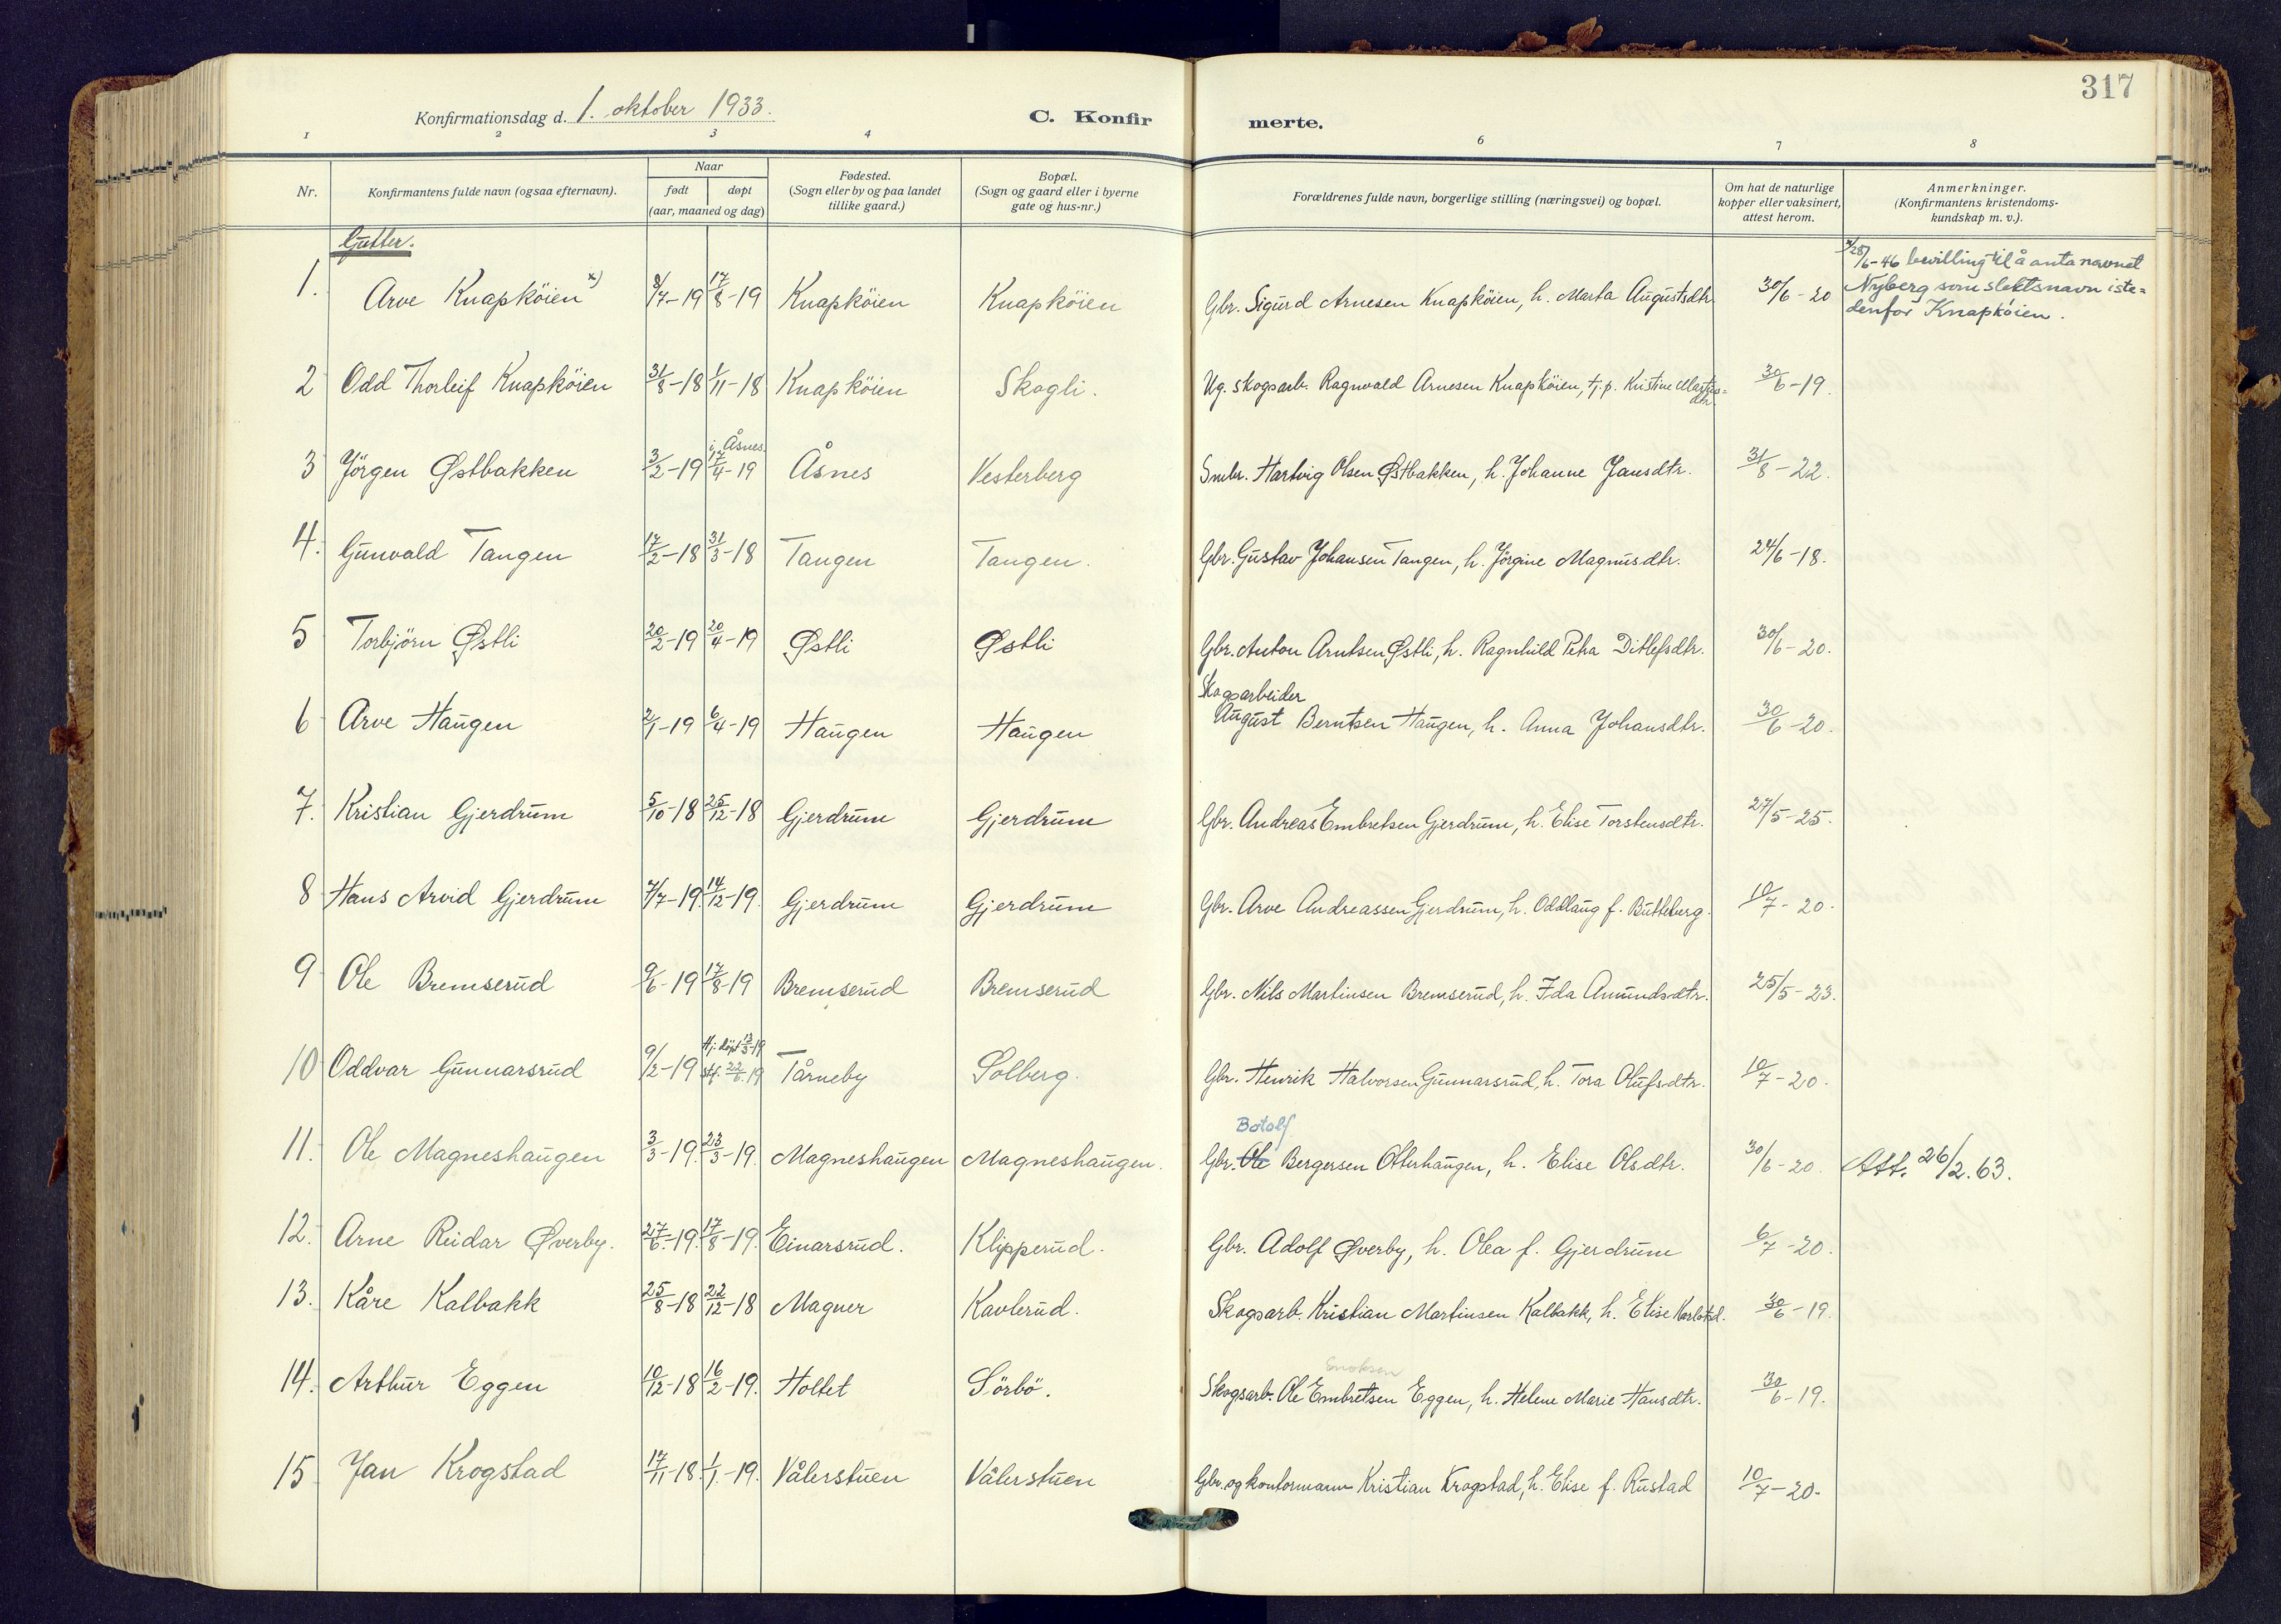 317
Konfirmationsdag d. 1. oktober 1933. C. Konfir merte.
1 2 3 4 6 7 8
Nr. Konfirmantens fulde navn (ogsaa efternavn). Naar født døpt (aar, maaned og dag) Fødested. (Sogn eller by og paa landet tillike gaard.) Bopæl. (Sogn og gaard eller i byerne gate og hus-nr.) Forældrenes fulde navn, borgerlige stilling (næringsvei) og bopæl. Om hat de naturlige kopper eller vaksinert, attest herom. Anmerkninger. (Konfirmantens kristendoms-kundskap m. v.).
Gutter.
1. Arve Knapköien x) 8/7-19 17/8-19 Knapköien Knapköien Gbr. Sigurd Arnesen Knapköien, h. Marta Augustsdtr. 30/6-20 x/ 28/6-46 bevilling til å anta navnet
Nyberg som slektsnavn iste=
denfor Knapköien.
2 Odd Thorleif Knapköien 31/8-18 1/11-18 Knapköien Skogli. Ug. skogsarb. Ragnvald Arnesen Knapköien, tj.p. Kristine Martins=
dtr. 30/6-19.
3 Jörgen Østbakken 3/2-19 i Åsnes 17/4-19 Åsnes Vesterberg Smbr. Hartvig Olsen Østbakken, h. Johanne Jansdtr. 31/8-22.
4. Gunvald Tangen 17/2-18 31/3-18 Tangen Tangen. Gbr. Gustav Johansen Tangen, h. Jörgine Magnusdtr. 24/6-18.
5 Torbjörn Østli 20/2-19 20/4-19 Østli Østli Gbr. Anton Arntsen Østli, h. Ragnhild Petra Ditlefsdtr. 30/6-20.
Skogsarbeider
6 Arve Haugen 2/1-19 6/4-19 Haugen Haugen August Berntsen Haugen, h. Anna Johansdtr. 30/6-20.
7. Kristian Gjerdrum 5/10-18 25/12-18 Gjerdrum Gjerdrum Gbr. Andreas Embretsen Gjerdrum, h. Elise Torstensdtr. 27/5-25.
8 Hans Arvid Gjerdrum 7/7-19. 14/12-19. Gjerdrum Gjerdrum Gbr. Arve Andreassen Gjerdrum, h. Oddlaug f. Butteberg. 10/7-20.
9 Ole Bremserud 9/6-19 17/8-19 Bremserud Bremserud Gbr. Nils Martinsen Bremserud, h. Ida Amundsdtr. 25/5-23.
10 Oddvar Gunnarsrud 9/2-19 Hj. döpt 13/3-19 stf. 22/6.19 Tårneby Solberg. Gbr. Henrik Halvorsen Gunnarsrud, h. Tora Olufsdtr. 10/7-20.
Botolf
11. Ole Magneshaugen 3/3-19. 23/3-19. Magneshaugen Magneshaugen. Gbr. Ole Bergersen Otterhaugen, h. Elise Olsdtr. 30/6-20. Att. 26/2.63.
12. Arne Reidar Øverby. 27/6.-19. 17/8-19. Einarsrud. Klipperud. Gbr. Adolf Øverby, h. Olea f. Gjerdrum 6/7-20.
13. Kåre Kalbakk 25/8-18 22/12-18 Magner Kavlerud. Skogsarb. Kristian Martinsen Kalbakk, h. Elise Karlsd. 30/6-19.
Enoksen
14. Arthur Eggen 10/12-18 16/2-19. Holtet Sörbö. Skogsarb. Ole Embretsen Eggen, h. Helene Marie Hansdtr. 30/6-19.
15 Jan Krogstad 17/11-18. 1/1.-19. Vålerstuen Vålerstuen Gbr. og kontormann Kristian Krogstad, h. Elise f. Rustad 10/7-20.